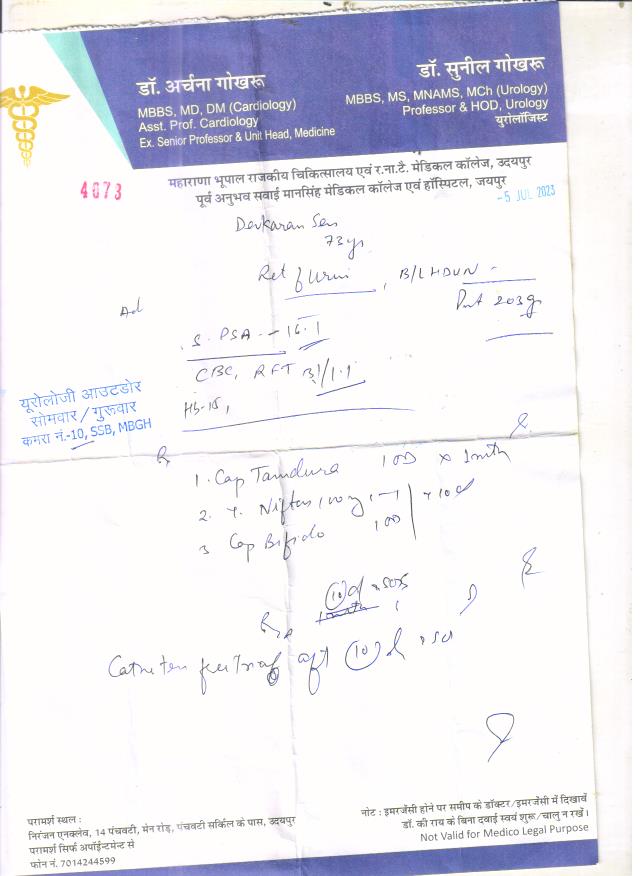 डॉ. अर्चना गोखरू
MBBS, MD, DM (Cardiology)
Asst. Prof. Cardiology
Ex. Senior Professor & Unit Head, Medicine
डॉ. सुनील गोखरू
MBBS, MS, MNAMS, MCh (Urology)
Professor & HOD, Urology
यूरोलॉजिस्ट
महाराणा भूपाल राजकीय चिकित्सालय एवं र.ना.टै. मेडिकल कॉलेज, उदयपुर
पूर्व अनुभव सवाई मानसिंह मेडिकल कॉलेज एवं हॉस्पिटल, जयपुर
4673
-5 JUL 2023
Devkaran Sen
73 yr
Ret of Urine, B/L HDUN
203g
Ad
S. PSA - 16.1
CBC, RFT 1.1
Hb-15,
यूरोलोजी आउटडोर
सोमवार/गुरूवार
कमरा नं.-10, SSB, MBGH
1. Cap Tamdura 1 OD x 1mth
2. T. Niftas 100mg 1-1 x 10d
3 Cap Bifido 1 OD
(10)d
Catheter aft (10) d
परामर्श स्थल :
निरंजन एनक्लेव, 14 पंचवटी, मेन रोड़, पंचवटी सर्किल के पास, उदयपुर
परामर्श सिर्फ अपॉईन्टमेन्ट से
फोन नं. 7014244599
नोट : इमरजेंसी होने पर समीप के डॉक्टर/इमरजेंसी में दिखावें
डॉ. की राय के बिना दवाई स्वयं शुरू/चालु न रखें।
Not Valid for Medico Legal Purpose